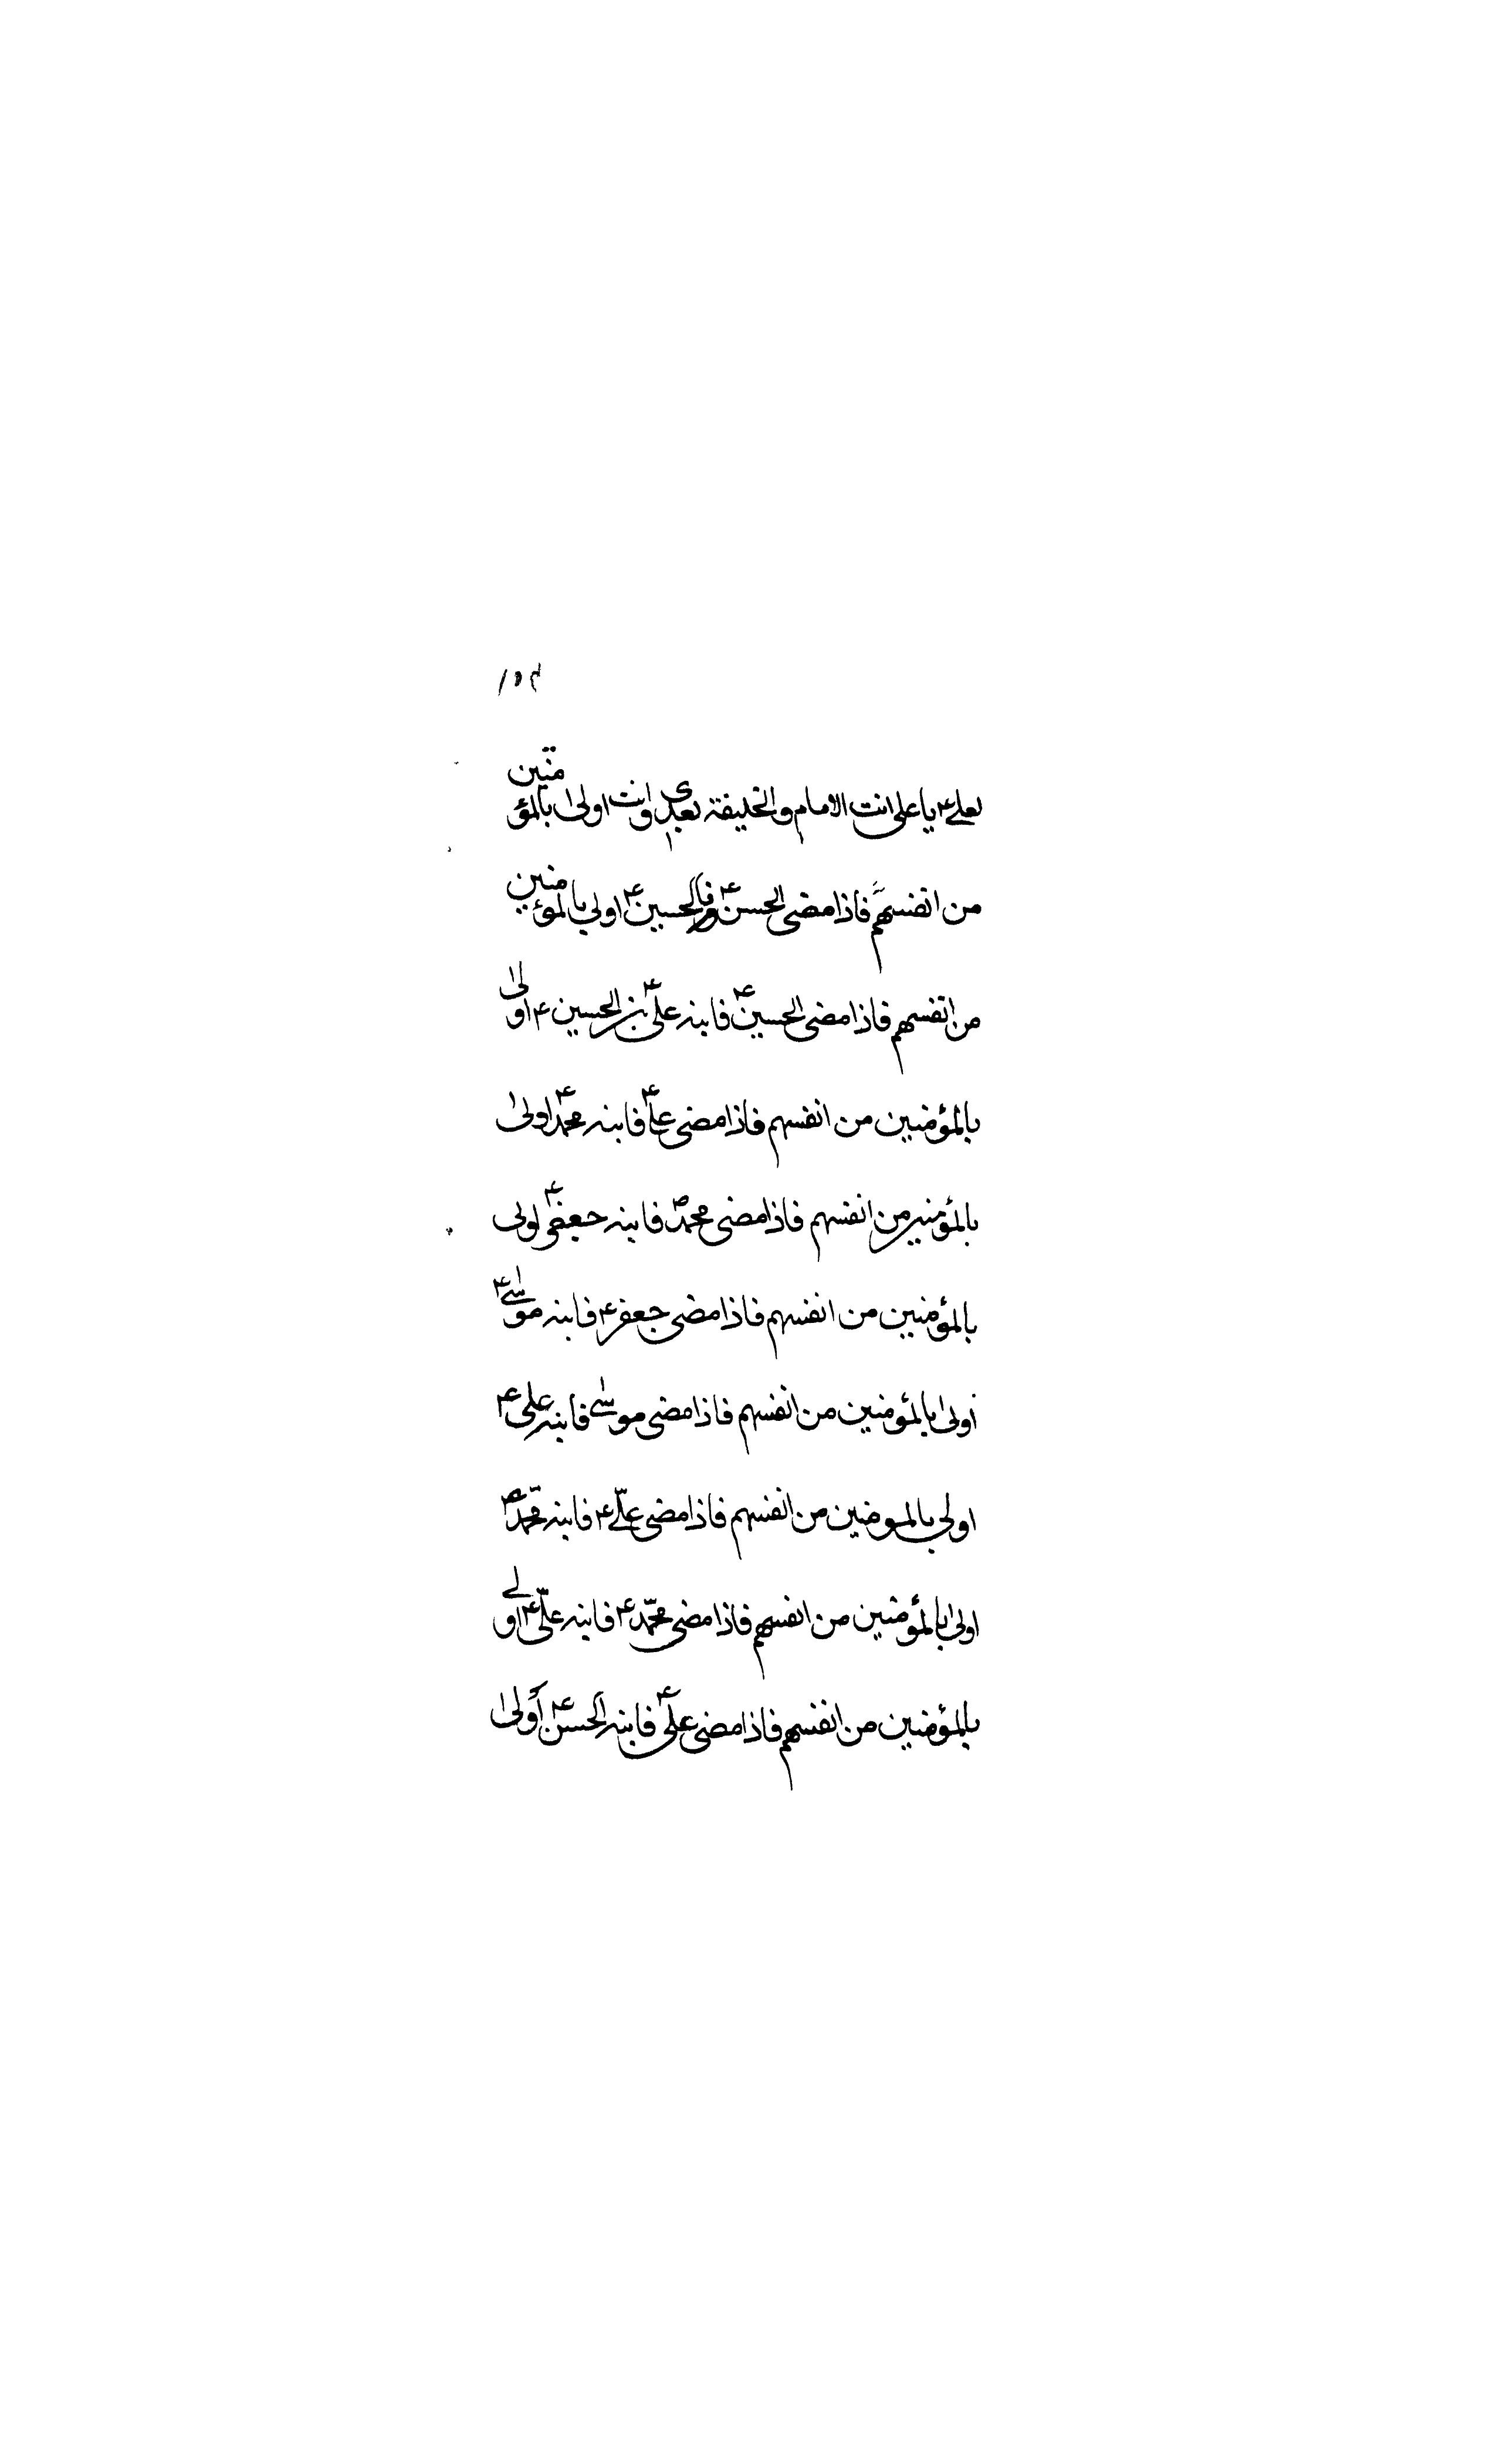 لعلي ع يا علي انت الامام والخليفة بعدي وانت اولى بالمؤمنين
من انفسهم فاذا مضى الحسن ع فالحسين ع اولي بالمؤمنين
من انفسهم فاذا مضى الحسين ع فابنه علي ع بن الحسين ع اولى
بالمؤمنين من انفسهم فاذا مضى علي ع فابنه محمد ع اولىٰ
بالمؤمنين من انفسهم فاذا مضى محمد ع فابنه جعفر ع اولى
بالمؤمنين من انفسهم فاذا مضى جعفر ع فابنه موسىٰ ع
اولى بالمؤمنين من انفسهم فاذا مضى موسىٰ فابنه علي ع
اولى بالمومنين من انفسهم فاذا مضى علّي ع فابنه محمّد ع
اولىٰ بالمؤمنين من انفسهم فاذا مضى محمّد ع فابنه علّي ع اولے
بالمؤمنين من انفسهم فاذا مضى علي ع فابنه الحسن ع أولىٰ